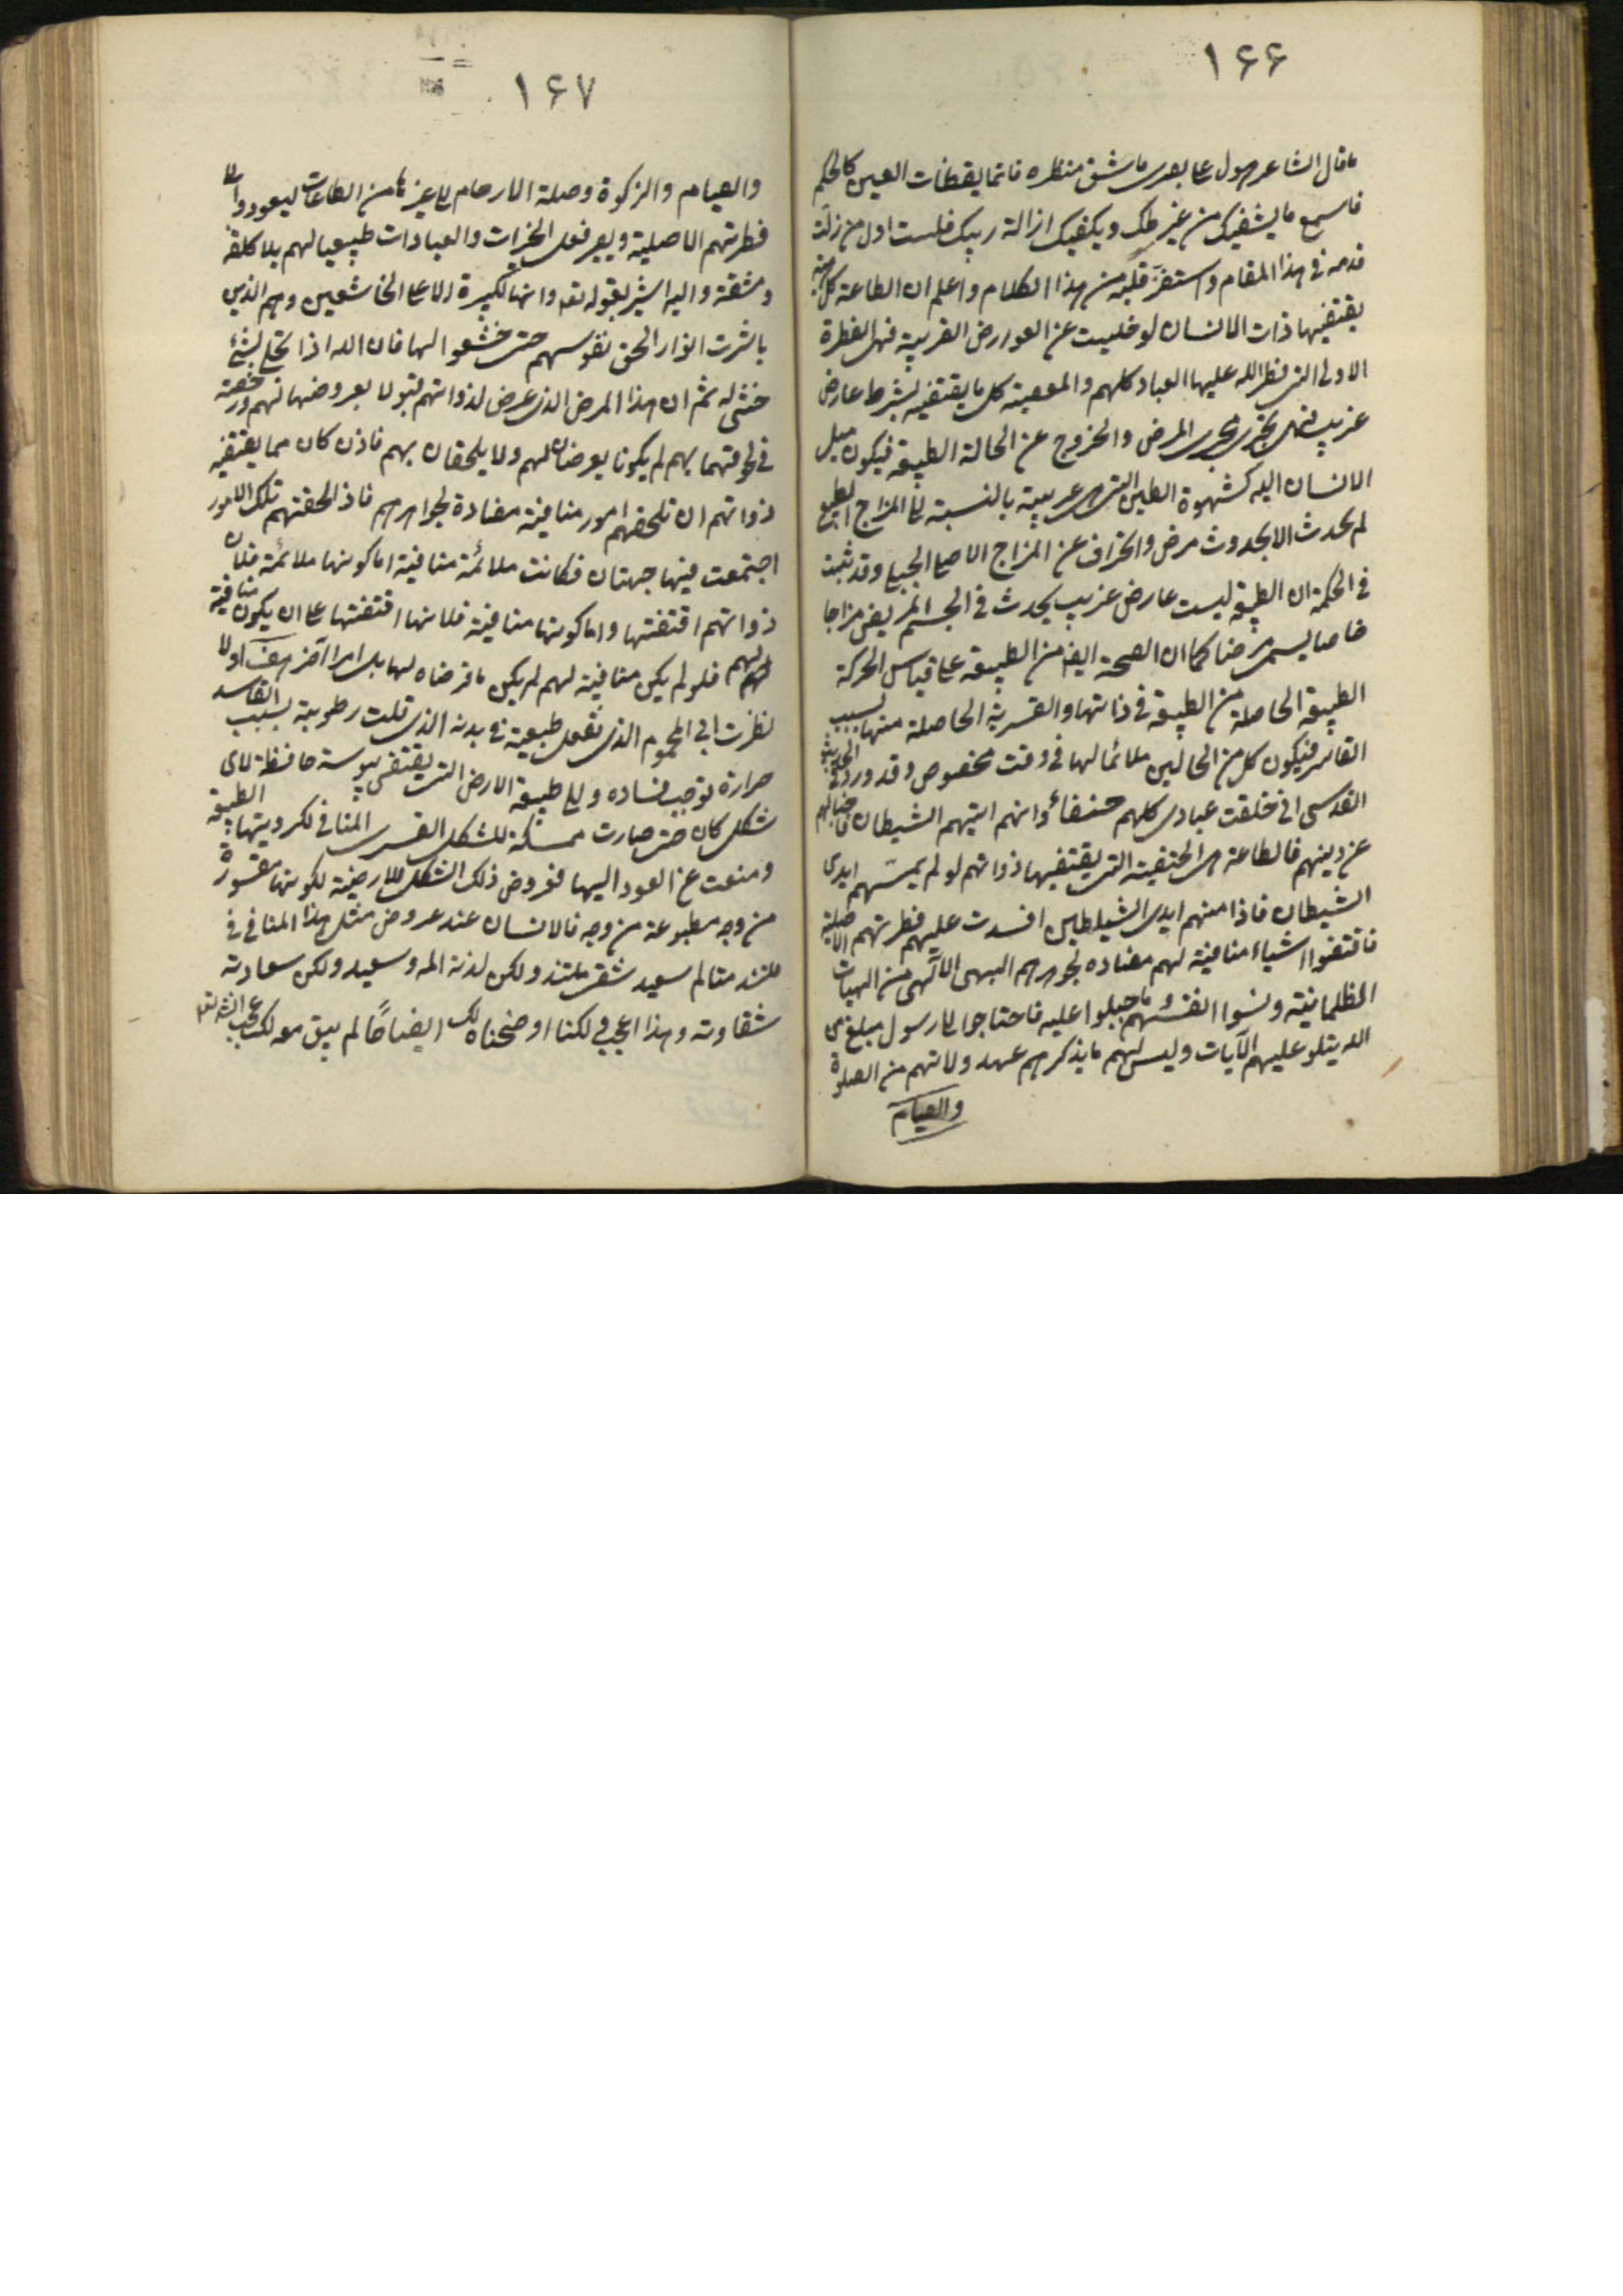 ۱۶۶
ما قال الشاعر هول على بصرى ما شق منظره فانما يقظات العين كالحلم
فاسمع ما يشفيك من غير ظك ويكفيك ازالة ريبك فلست اول من زلت
قدمه فى هذا المقام واستفز قلبه من هذا الكلام واعلم ان الطاعة كل
يقتضيها ذات الانسان لو خليت عن العوارض الغريبة فهى الفطرة
الاولى التى فطر الله عليها العباد كلهم والمعصية كل ما يقتضيه بشرط عارض
غريب فهى تجرى مجرى المرض والخروج عن الحالة الطبيعية فيكون ميل
الانسان اليه كشهوة الطين التى هى غريبة بالنسبة الى المزاج الطبيعى
لم يحدث الا بحدوث مرض وانحراف عن المزاج الاصلى الجبلى وقد ثبت
فى الحكمة ان الطبيعة ليست عارض غريب يحدث فى الجسم المريض مزاجا
خاصا يسمى مرضا كما ان الصحة ايضا من الطبيعة على قياس الحركة
الطبيعية الحاصلة من الطبيعة فى ذاتها والقسرية الحاصلة منها بسبب
القاسر فيكون كل من الحالين ملائما لها فى وقت مخصوص وقد ورد فى الحديث
القدسى انى خلقت عبادى كلهم حنفاء وانهم اتيهم الشيطان فاضلهم
عن دينهم فالطاعة هى الحنيفية التى يقتضيها ذواتهم لو لم يمسهم ايدى
الشيطان فاذا مسهم ايدى الشياطين افسدت عليهم فطرتهم الاصلية
فاقتضوا اشياء منافية لهم مضادة لجوهرهم البهى الالهى من الهيات
الظلمانية ونسوا انفسهم وما جبلوا عليه فاحتاجوا الى رسول مبلغ من
الله يتلو عليهم الآيات وليس لهم ما يذكرهم عهد ولاتهم من الصلوة
والصيام
۱۶۷
والصيام والزكوة وصلة الارحام الى غيرها من الطاعات ليعودوا الى
فطرتهم الاصلية ويصير فعل الخيرات والعبادات طبيعيا لهم بلا كلفة
ومشقة واليه اشير بقوله تعالى وانها لكبيرة الا على الخاشعين وهم الذين
باشرت انوار الحق نفوسهم حتى خشعوا لها فان الله اذا تجلى لشئ
خشع له ثم ان هذا المرض الذى عرض لذواتهم لو لا بعروضها لهم ورخصة
فى لحوقهما بهم لم يكونا يعرضان لهم ولا يلحقان بهم فاذن كان مما يقتضيه
ذواتهم ان تلحقهم امور منافية مضادة لجواهرهم فاذا لحقتهم تلك الامور
اجتمعت فيها جهتان فكانت ملائمة منافية اما كونها ملائمة فلان
ذواتهم اقتضتها واما كونها منافية فلانها اقتضتها على ان يكون منافية
لهم فلو لم يكن منافية لهم لم يكن ما فرضناه لها بل امرا آخر هف او لا
نظرت الى المحموم الذى تفعل طبيعية فى بدنه الذى قلت رطوبته بسبب الفاسد
حرارة توجب فساده والى طبيعة الارض التى يقتضى يبوسة حافظة لاى
شكل كان حتى صارت ممسكة للشكل القسرى المنافى لكرويتها الطبيعية
ومنعت عن العود اليها فعروض ذلك الشكل للارضية لكونها مقسورة
من وجه مطبوعة من وجه فالانسان عند عروض مثل هذا المنافى
ملتذ متالم سعيد شقى ملتذ ولكن لذته المه وسعيد ولكن سعادته
شقاوته وهذا اعجب لكنا اوضحناه لك ايضاحا لم يبق معه لك عجب